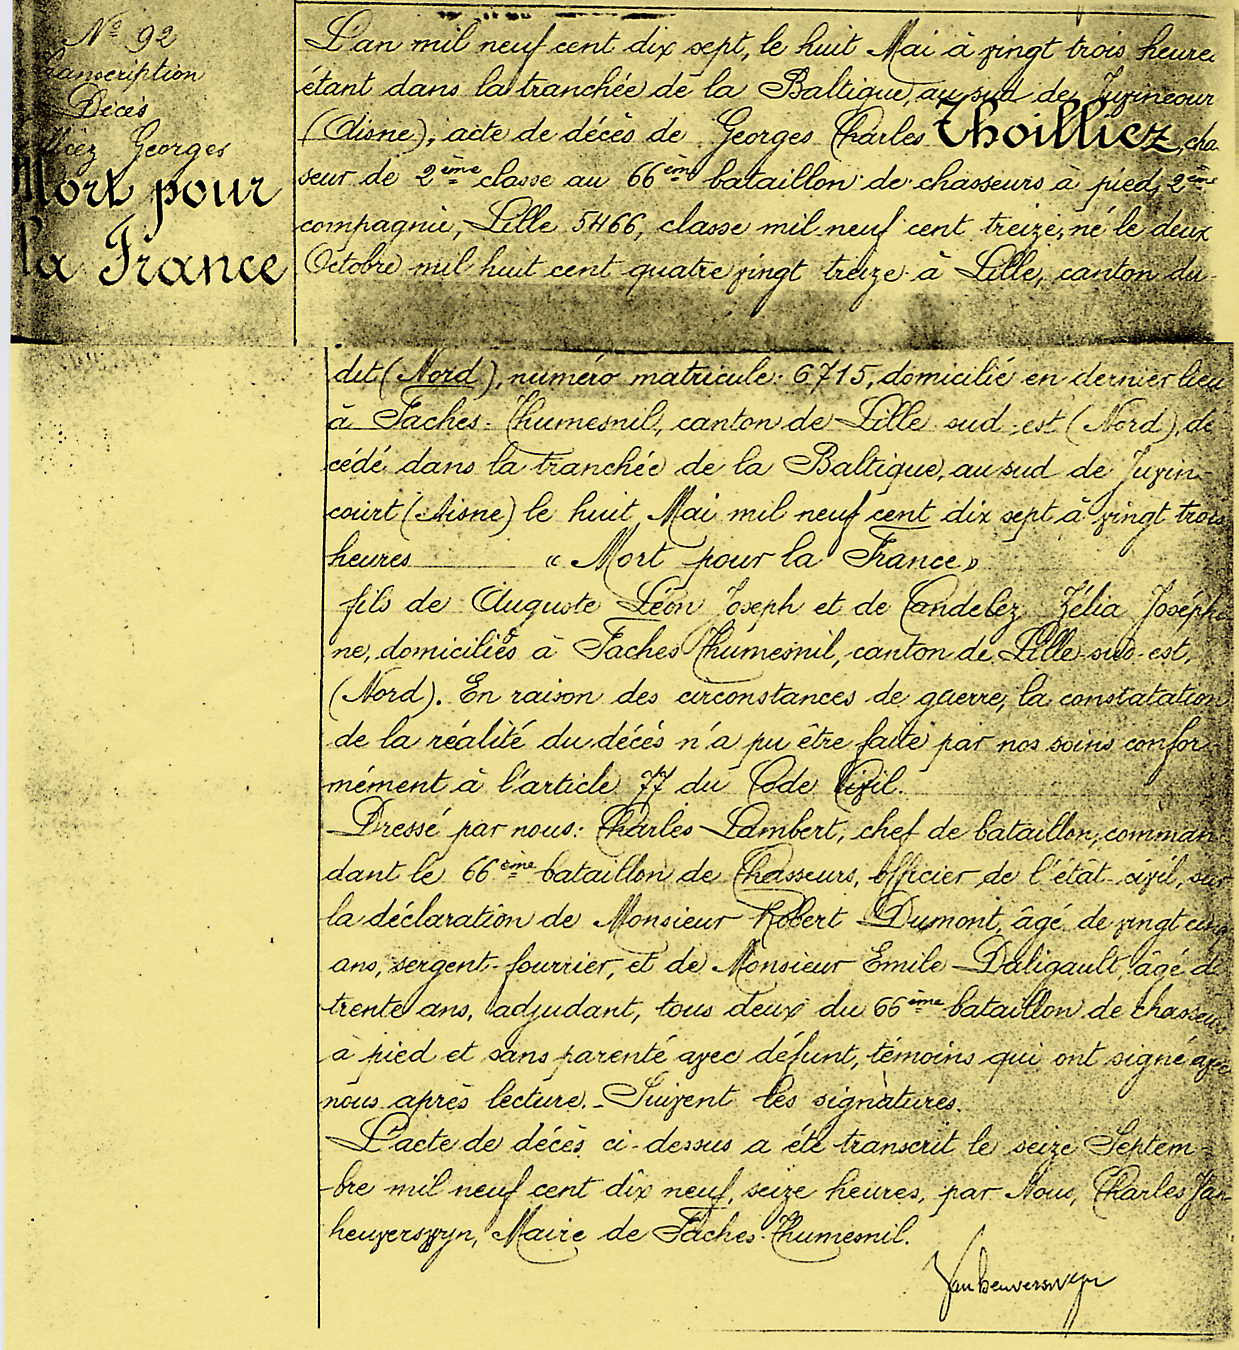 Nº 92
Transcription
Décès
Georges
Mort pour
la France
L'an mil neuf cent dix sept, le huit Mai à vingt trois heures
étant dans la tranchée de la Baltique, au sud de Juvincour
(Aisne), acte de décès de Georges Charles Thoilliez, chas
seur de 2ème classe au 66ème bataillon de chasseurs à pied, 2ème
compagnie, Lille 5466, classe mil neuf cent treize, né le deux
Octobre mil huit cent quatre vingt treize à Lille, canton du
dit (Nord), numéro matricule: 6715, domicilié en dernier lieu
à Faches-Thumesnil, canton de Lille sud-est (Nord), dé
cédé dans la tranchée de la Baltique, au sud de Juvin-
court (Aisne) le huit Mai mil neuf cent dix sept à vingt trois
heures « Mort pour la France »
fils de Auguste Léon Joseph et de Candelez Zélia Joséphi-
ne, domiciliés à Faches Thumesnil, canton de Lille-sud-est,
(Nord). En raison des circonstances de guerre, la constatation
de la réalité du décès n'a pu être faite par nos soins confor-
mément à l'article 77 du Code Civil.
Dressé par nous: Charles Lambert, chef de bataillon, comman
dant le 66ème bataillon de Chasseurs, officier de l'état-civil, sur
la déclaration de Monsieur Robert Dumont, âgé de vingt cinq
ans, sergent-fourrier, et de Monsieur Emile Daligault, âgé de
trente ans, adjudant, tous deux du 66ème bataillon de chasseurs
à pied et sans parenté avec défunt, témoins qui ont signé avec
nous après lecture. - Suivent les signatures.
L'acte de décès ci-dessus a été transcrit le seize Septem-
-bre mil neuf cent dix neuf, seize heures, par Nous, Charles Van
heuverswyn, Maire de Faches-Thumesnil.
Vanheuverswyn